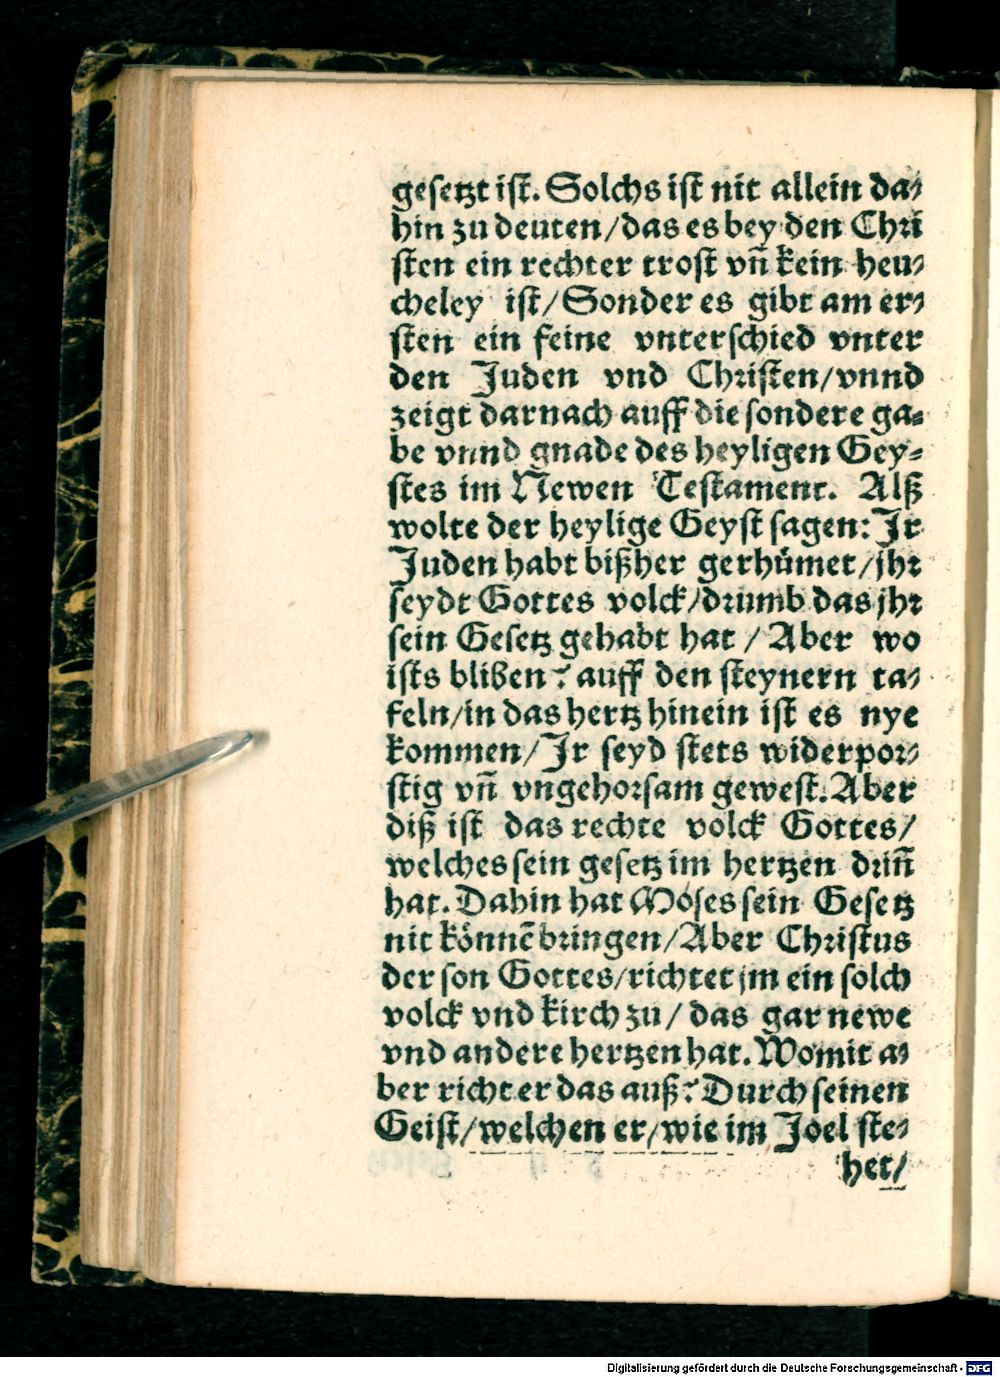 gesetzt ist. Solchs ist nit allein da⸗
hin zu deuten/das es bey den Chri
sten ein rechter trost vñ kein heu⸗
cheley ist/Sonder es gibt am er⸗
sten ein feine vnterschied vnter
den Juden vnd Christen/vnnd
zeigt darnach auff die sondere ga⸗
be vnnd gnade des heyligen Gey⸗
stes im Newen Testament. Alß
wolte der heylige Geyst sagen: Jr
Juden habt bißher gerhümet/jhr
seydt Gottes volck/drumb das jhr
sein Gesetz gehabt hat / Aber wo
ists bliben? auff den steynern ta⸗
feln/in das hertz hinein ist es nye
kommen/Jr seyd stets widerpor⸗
stig vñ vngehorsam gewest. Aber
diß ist das rechte volck Gottes/
welches sein gesetz im hertzen drinñ
hat. Dahin hat Moses sein Gesetz
nit könnẽ bringen/Aber Christus
der son Gottes/richtet jm ein solch
volck vnd kirch zu/ das gar newe
vnd andere hertzen hat. Womit a⸗
ber richt er das auß? Durch seinen
Geist/welchen er/wie im Joel ste⸗
het/
Digitalisierung gefördert durch die Deutsche Forschungsgemeinschaft - DFG